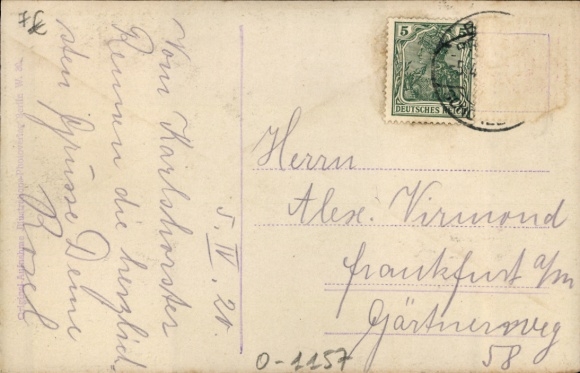 5. IV. 20.
Vom Karlshorster
Rennen die herzlich-
sten Grüsse Deine
Rosel
5
DEUTSCHES REICH
Herrn
Alex. Virmond
Frankfurt a/M
Gärtnerweg
58
0-1157